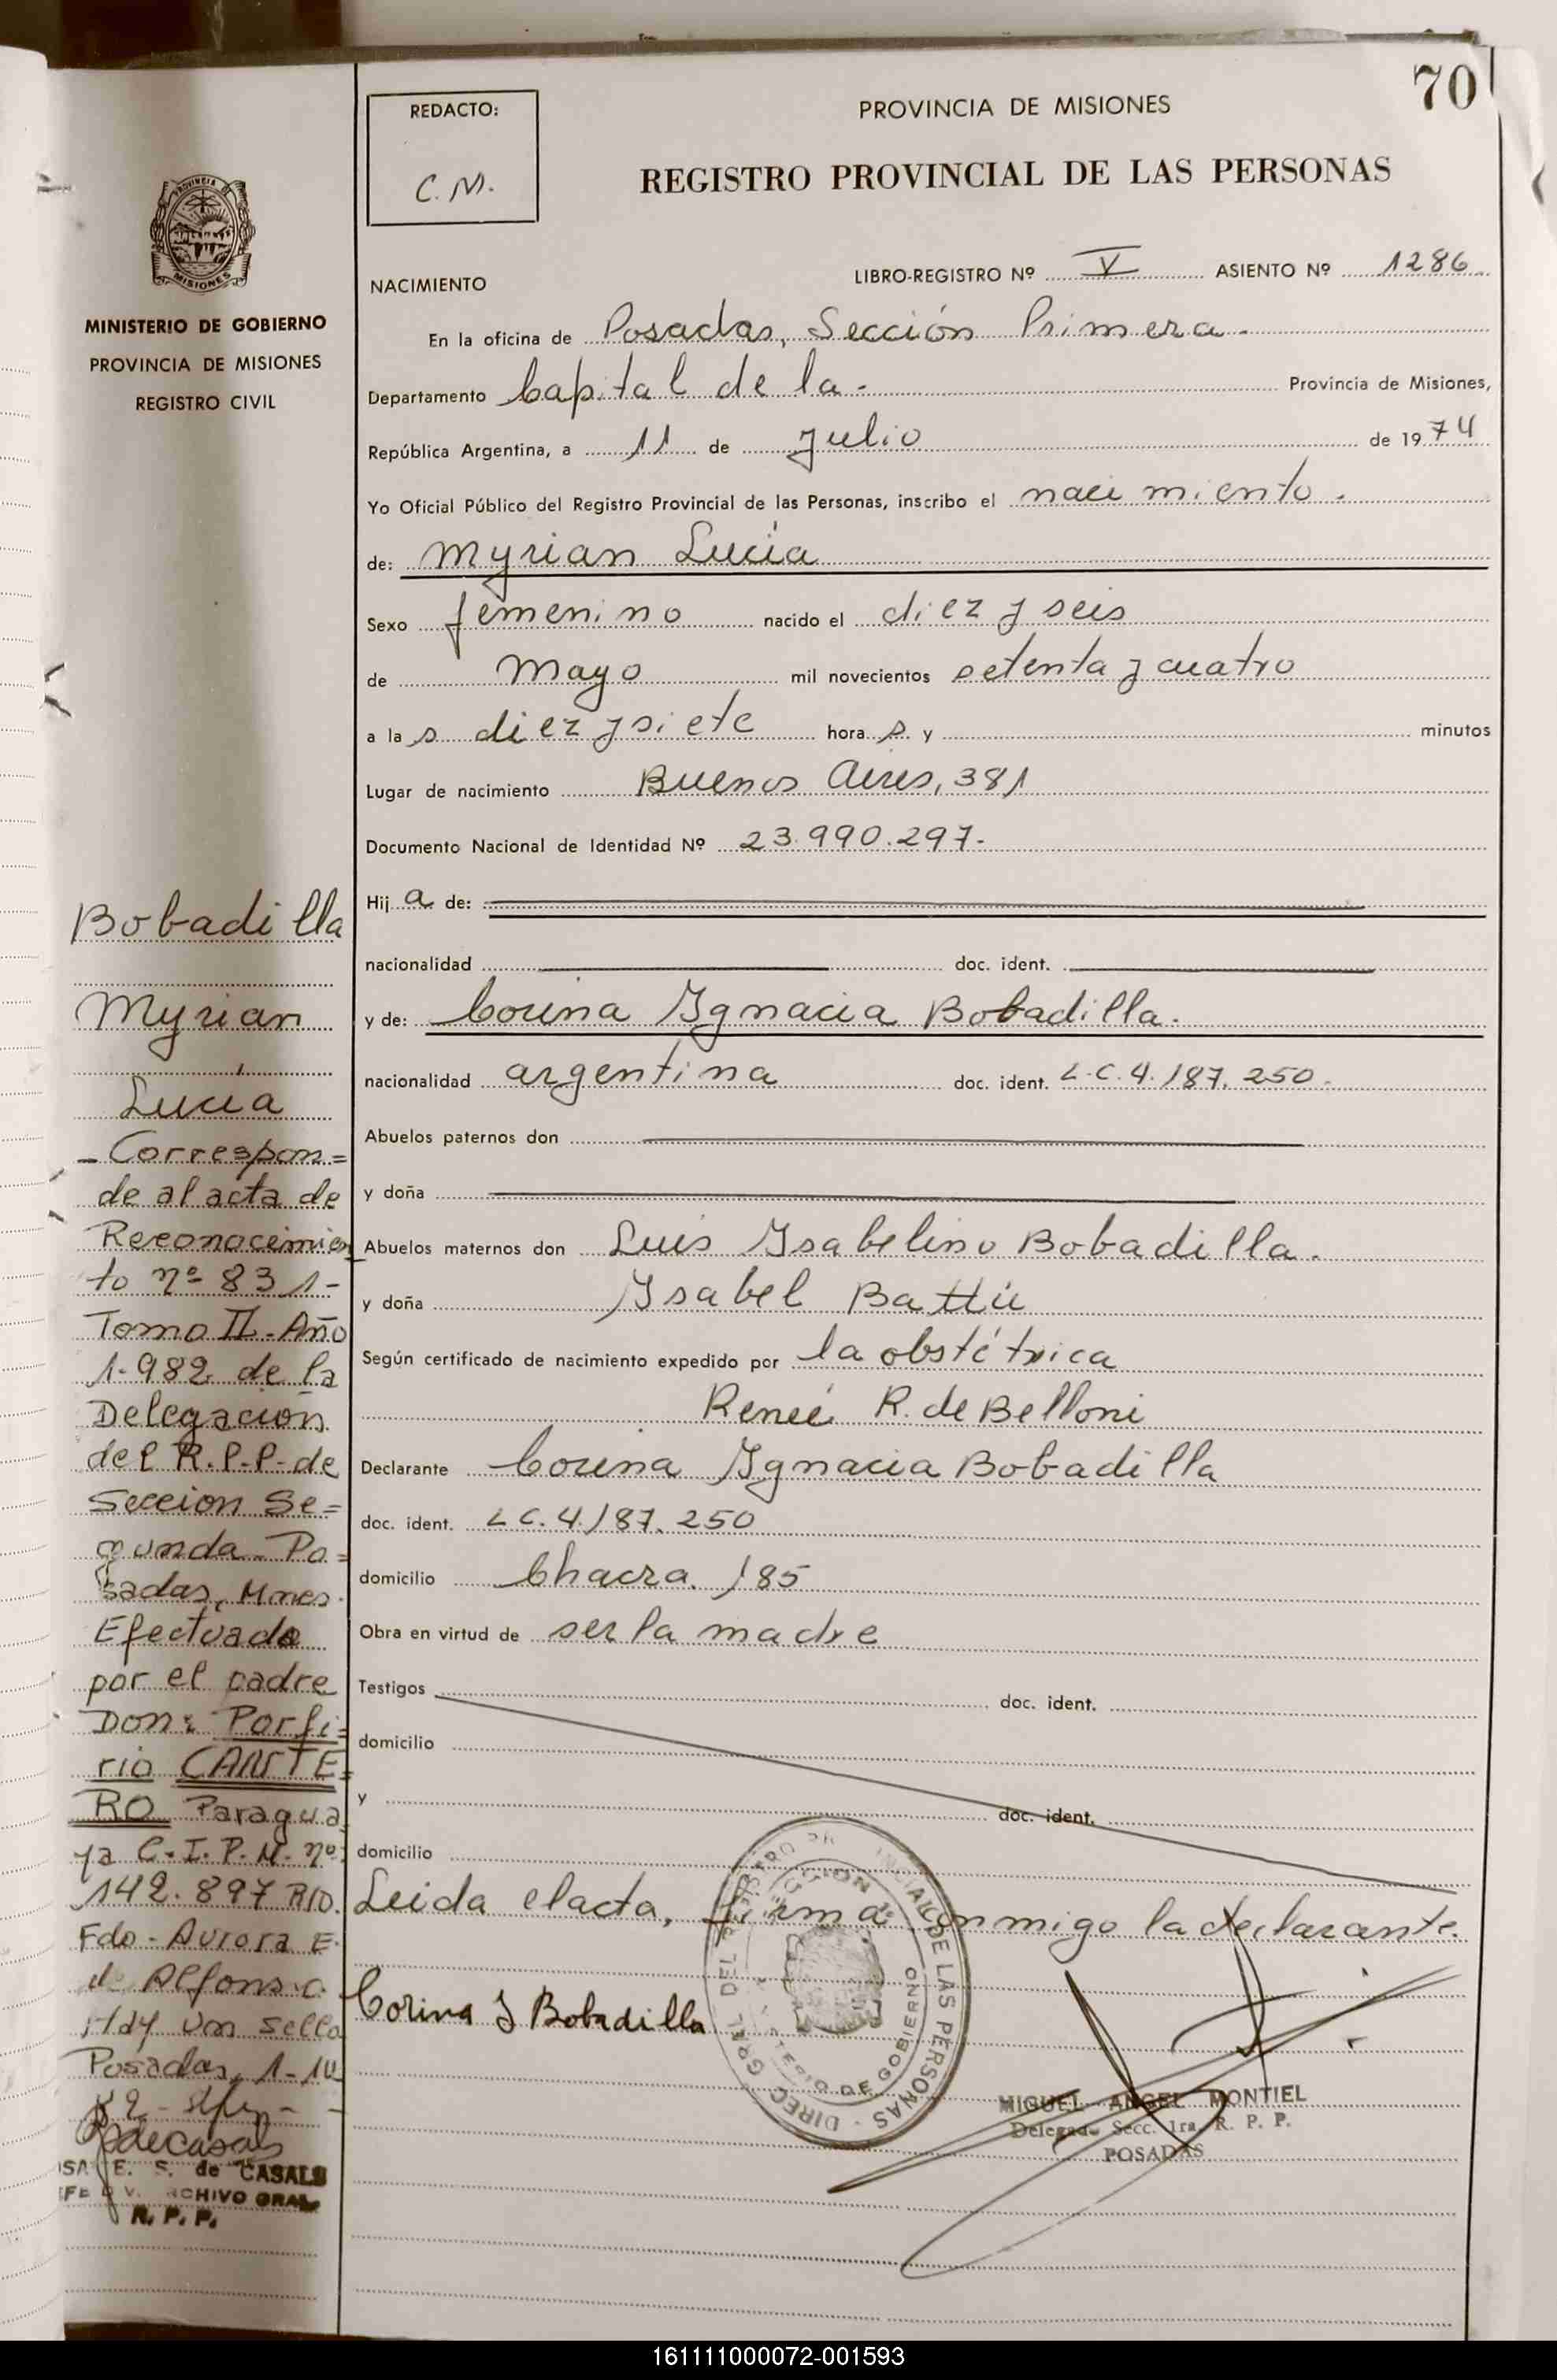 70
REDACTO:
C.M.
PROVINCIA DE MISIONES
REGISTRO PROVINCIAL DE LAS PERSONAS
MISIONES
MINISTERIO DE GOBIERNO
PROVINCIA DE MISIONES
REGISTRO CIVIL
NACIMIENTO
LIBRO-REGISTRO Nº V ASIENTO Nº 1286
En la oficina de Posadas, Sección Primera.
Departamento Capital de la - Provincia de Misiones,
República Argentina, a 11 de Julio de 1974
Yo Oficial Público del Registro Provincial de las Personas, inscribo el nacimiento.
de: Myrian Lucía
Sexo femenino nacido el diez y seis
de Mayo mil novecientos setenta y cuatro
a las diez y siete horas y minutos
Lugar de nacimiento Buenos Aires, 381
Documento Nacional de Identidad Nº 23.990.297.
Hija de:
nacionalidad doc. ident.
y de: Corina Ygnacia Bobadilla.
nacionalidad argentina doc. ident. L.C. 4.187.250.
Abuelos paternos don
y doña
Abuelos maternos don Luis Ysabelino Bobadilla.
y doña Ysabel Battú
Según certificado de nacimiento expedido por la obstétrica
Reneé R. de Belloni
Declarante Corina Ygnacia Bobadilla
doc. ident. L C. 4.187.250
domicilio Chacra. 185
Obra en virtud de ser la madre
Testigos doc. ident.
domicilio
y doc. ident.
domicilio
Leida el acta, firma conmigo la declarante.
Corina I Bobadilla
MIGUEL ANGEL MONTIEL
Delegado Secc. 1ra. R. P. P.
POSADAS
DIREC. GRAL. DEL REGISTRO PROVINCIAL DE LAS PERSONAS
MINISTERIO DE GOBIERNO
Bobadilla
Myrian
Lucía
- Correspon=
de al acta de
Reconocimien
to nº 831-
Tomo II - Año
1.982. de la
Delegacion
del R.P.P. de
Seccion Se=
gunda - Po=
sadas, Mnes.
Efectuado
por el padre
Don: Porfi=
rio CANTE=
RO Paragua
ya C.I.P.M. nº
142.897
Fdo - Aurora E.
de Alfonso.
Hay un sello
Posadas, 1-10
82-
E. S. de CASALS
ARCHIVO GRAL.
R. P. P.
161111000072-001593